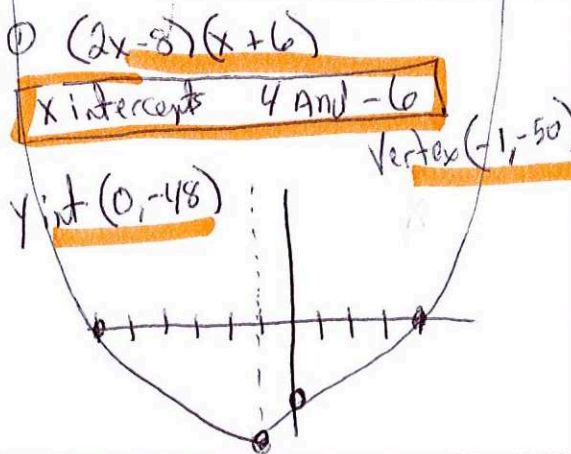 ① (2x-8)(x+6)
x intercepts 4 And -6
Vertex (-1,-50)
y int (0,-48)